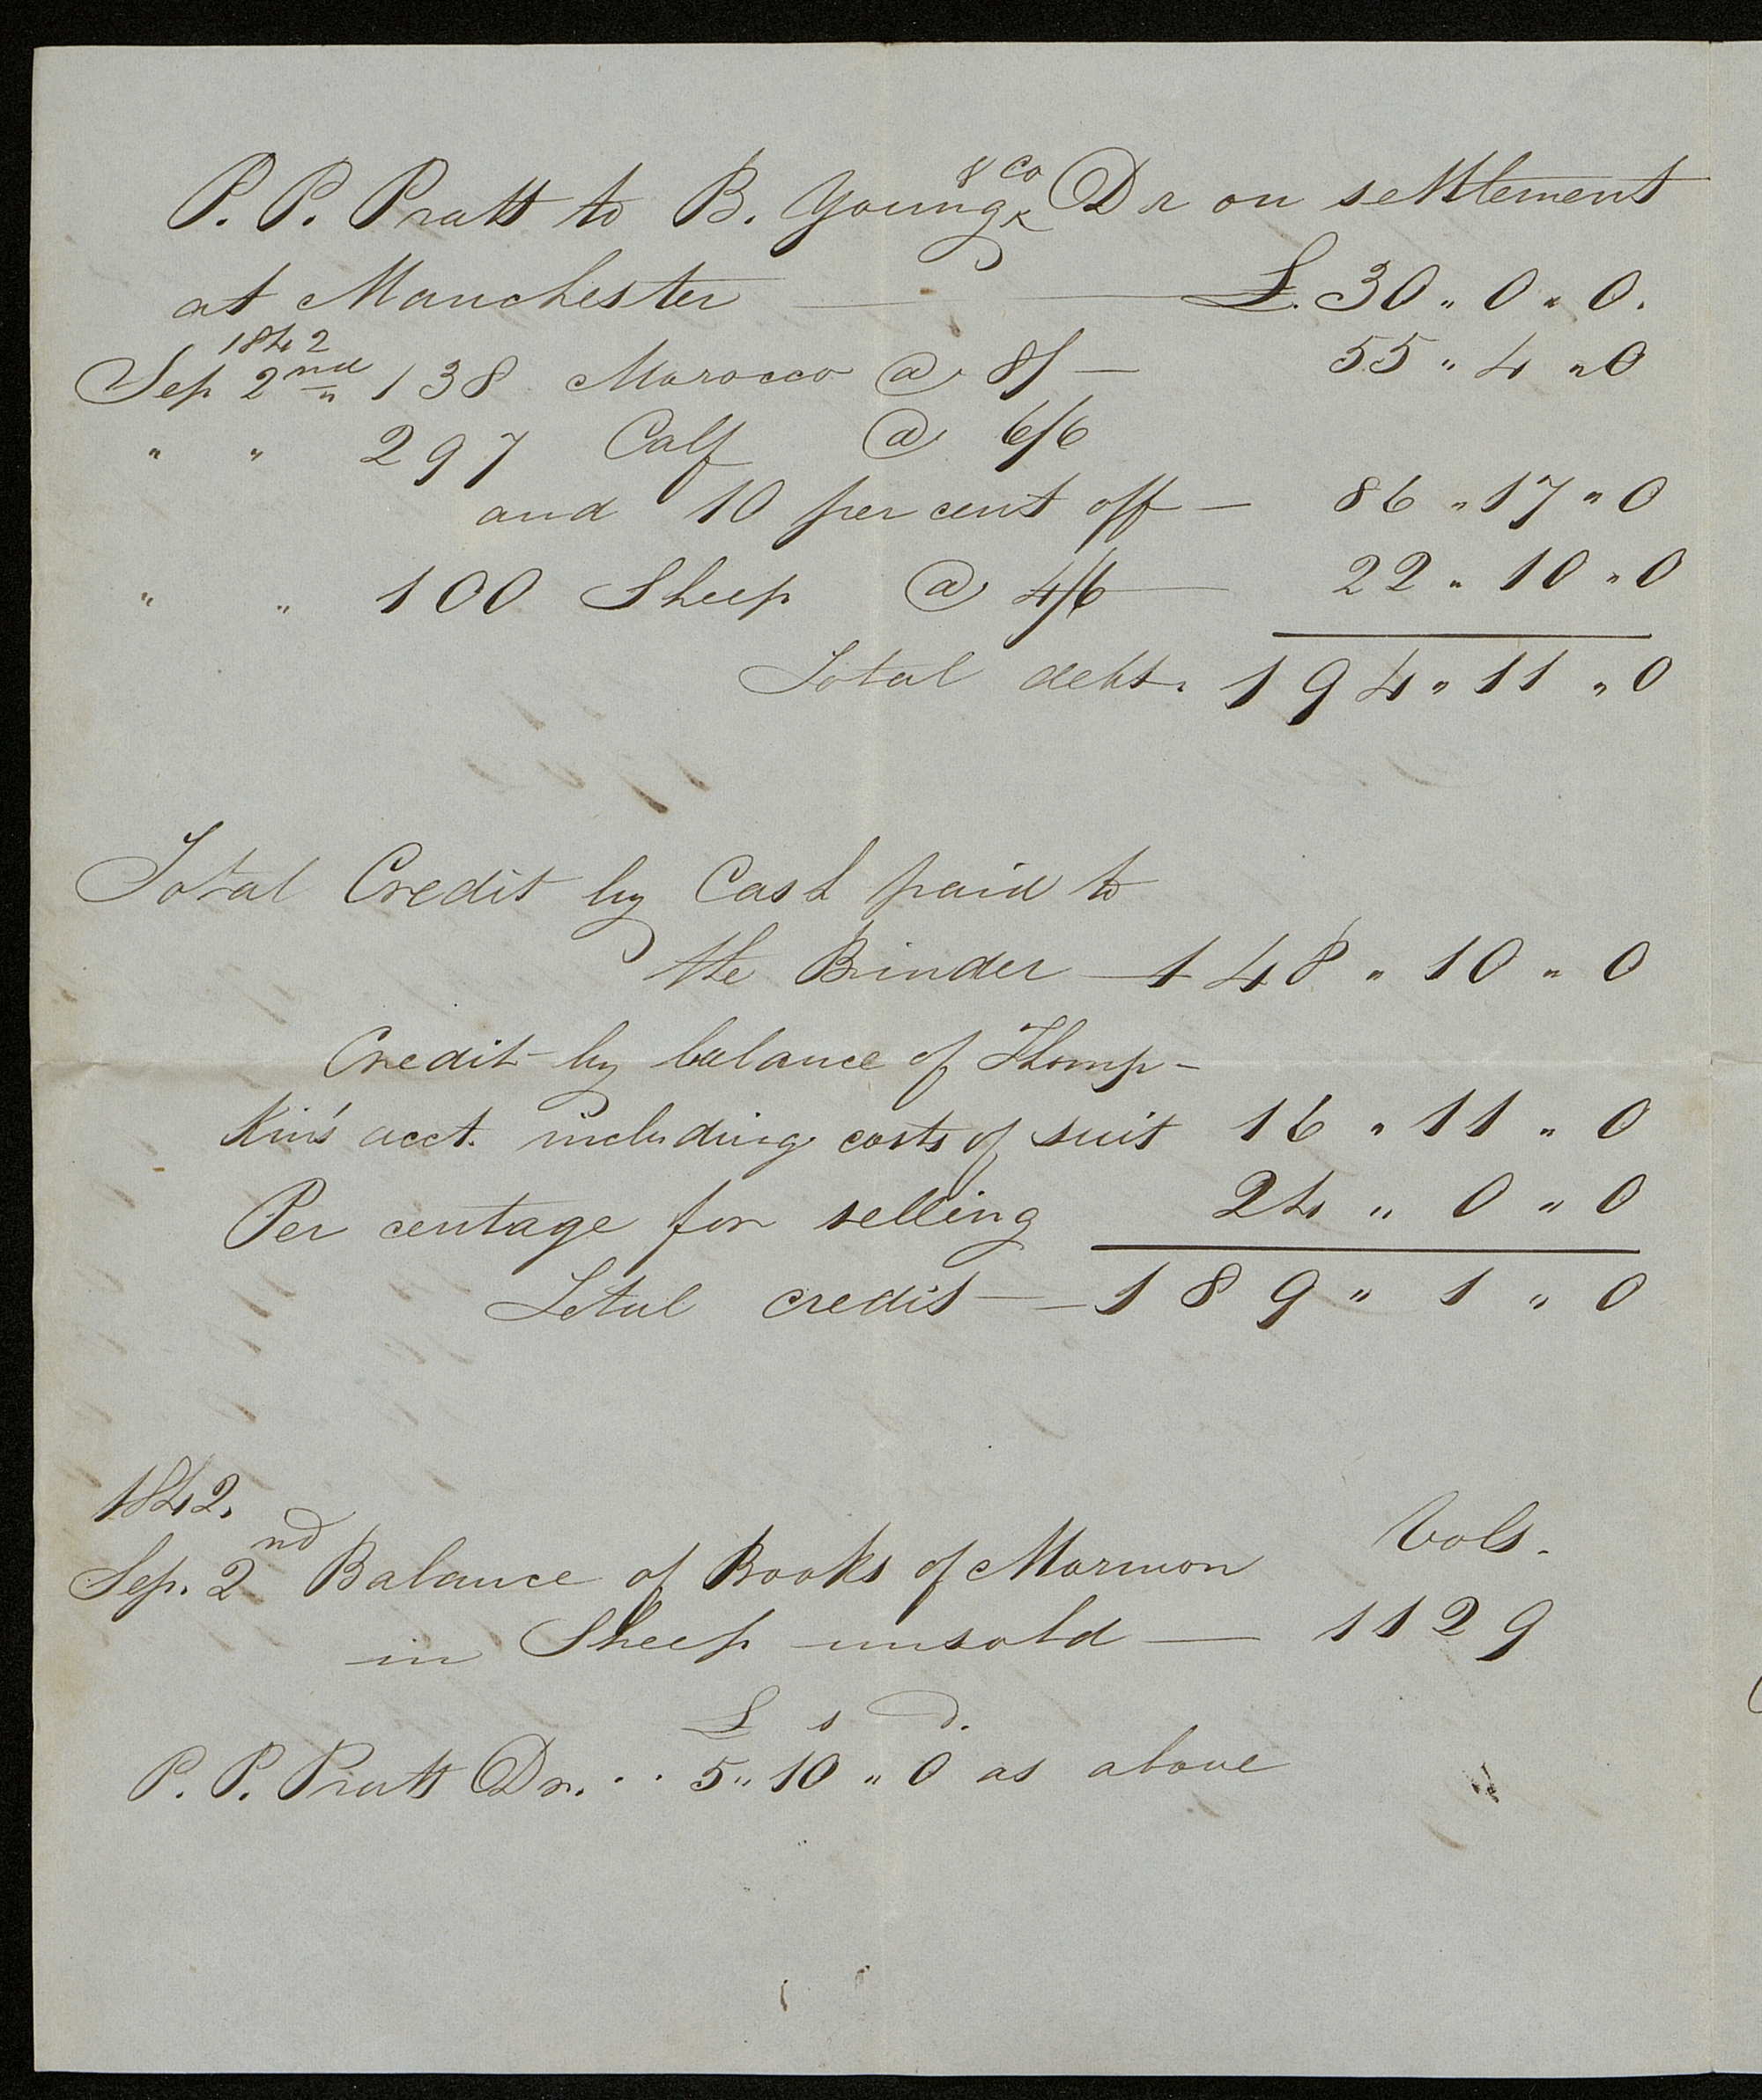 P. P. Pratt to B. Young & Co Dr on settlement
at Manchester £. 30 " 0 " 0.
1842
Sep 2nd 138 Marocco @ 8/– 55 " 4 " 0
" " 297 Calf @ 6/6
and 10 per cent off – 86 " 17 " 0
" " 100 Sheep @ 4/6 22 " 10 " 0
Total debt. 194 " 11 " 0
Total Credit by Cash paid to
the Binder – 148 " 10 " 0
Credit by balance of Thomp-
kin's acct. including costs of suit 16 " 11 " 0
Per centage for selling 24 " 0 " 0
Total credit – 189 " 1 " 0
1842.
Vols.
Sep. 2nd Balance of Books of Mormon
in Sheep unsold — 1129
£ s D.
P. P. Pratt Dr. . . 5 " 10 " 0 as above